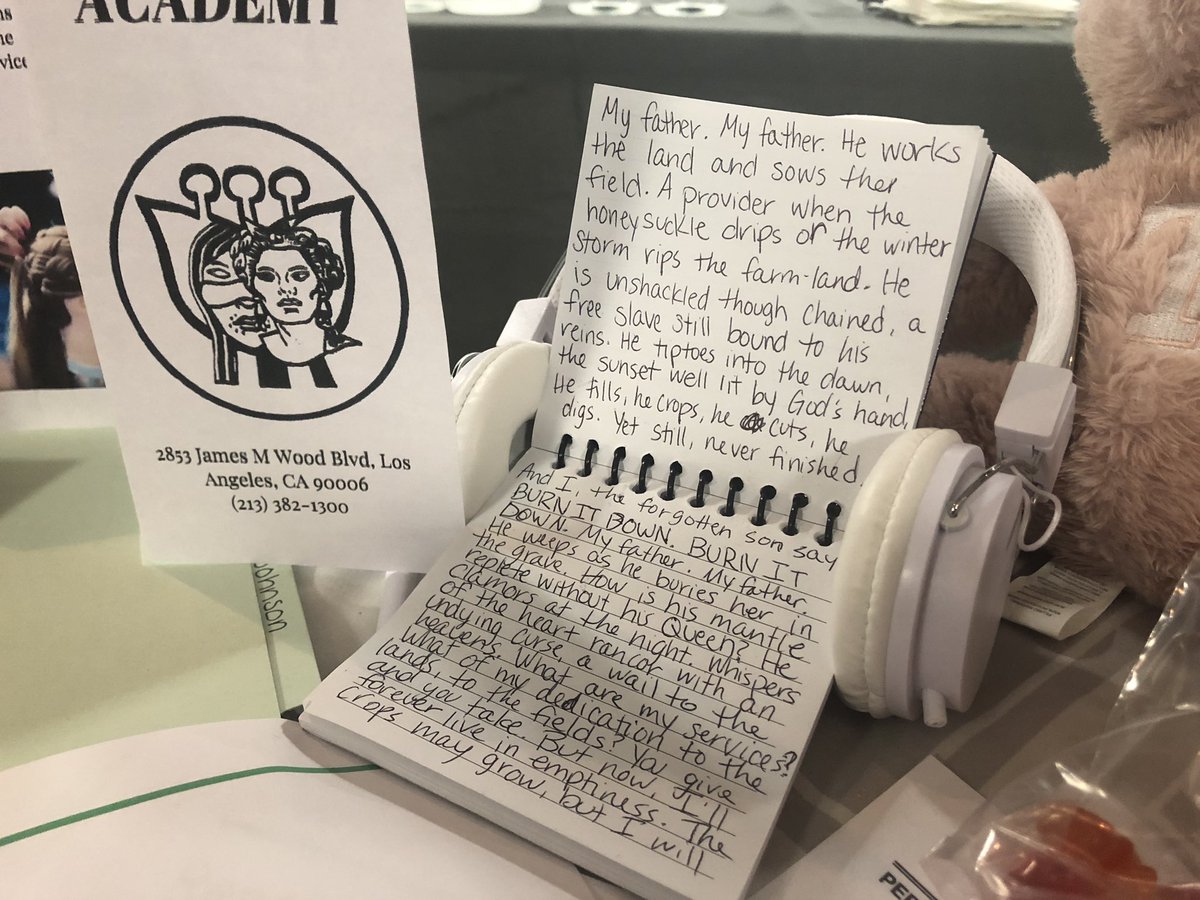 ACADEMY
2853 James M Wood Blvd, Los
Angeles, CA 90006
(213) 382-1300
Johnson
My father. My father. He works
the land and sows ther
field. A provider when the
honeysuckle drips or the winter
storm rips the farm-land. He
is unshackled though chained, a
free slave still bound to his
reins. He tiptoes into the dawn,
the sunset well lit by God's hand,
He tills, he crops, he cuts, he
digs. Yet still, never finished.
And I, the forgotten son say
BURN IT DOWN. BURN IT
DOWN. My father. My father.
He weeps as he buries her in
the grave. How is his mantle
replete without his Queen? He
clamors at the night. Whispers
of the heart rancor with an
undying curse, a wail to the
heavens. What are my services?
What of my dedication to the
lands, to the fields? You give
and you take. But now, I'll
forever live in emptiness. The
crops may grow, but I will